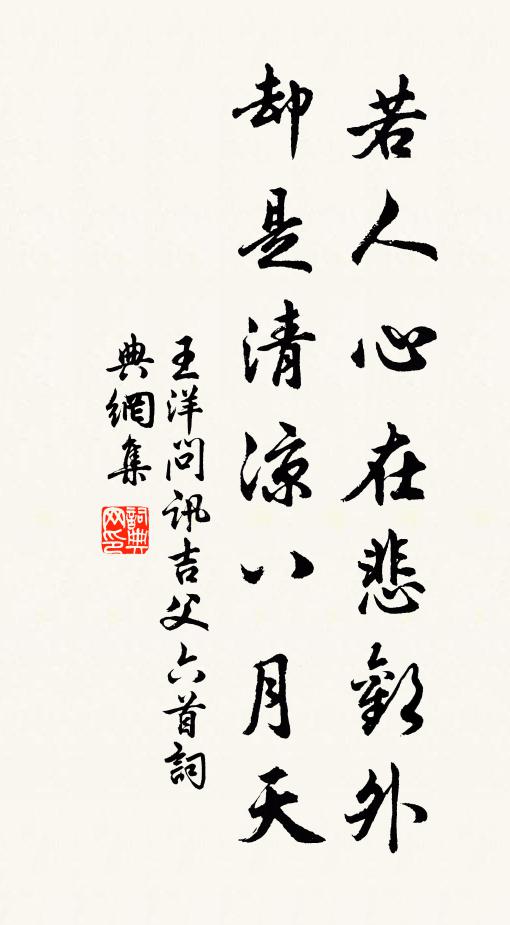 若人心在悲歡外
却是清涼八月天
王洋問訊吉父六首詞
典網集
詞典
网印